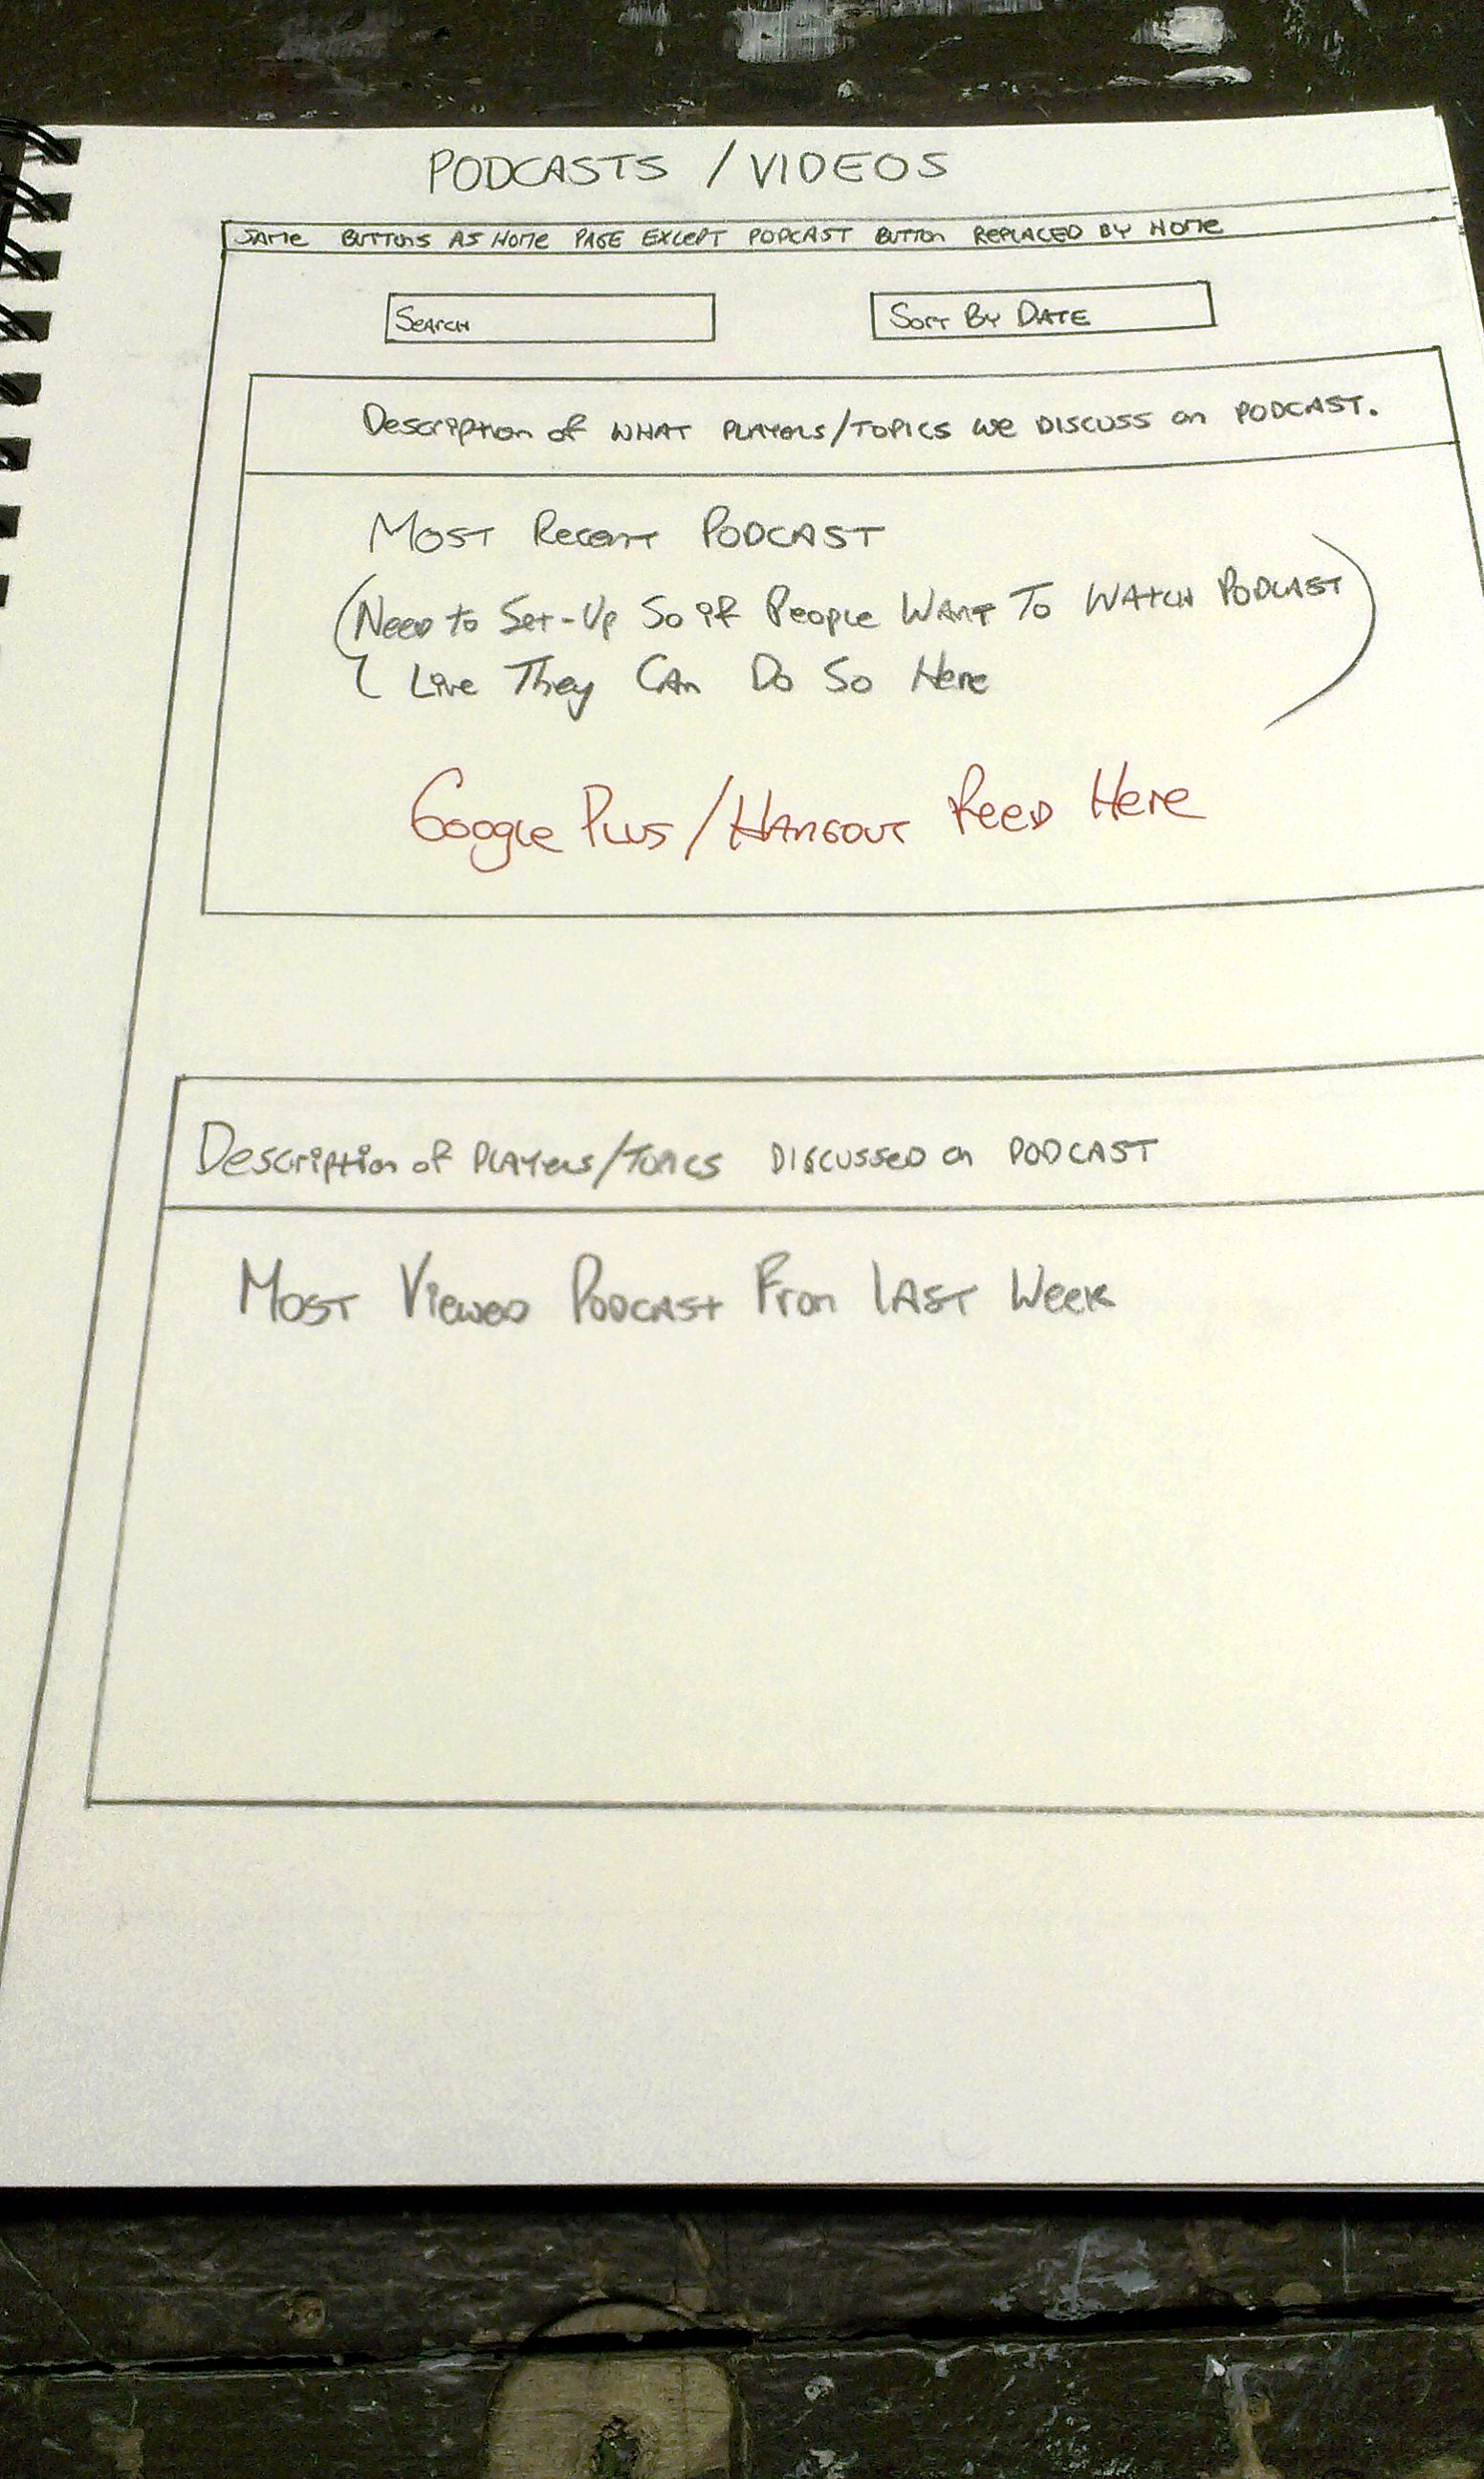 PODCASTS / VIDEOS
SAME BUTTONS AS HOME PAGE EXCEPT PODCAST BUTTON REPLACED BY HOME
Search
Sort By Date
Description of WHAT PLAYERS/TOPICS we DISCUSS on PODCAST.
MOST Recent PODCAST
(Need to Set-Up So if People Want To WATCH PODCAST
Live They Can Do So Here)
Google Plus/Hangout Feed Here
Description of PLAYers/TOPICS DISCUSSED on PODCAST
Most Viewed Podcast From LAST Week